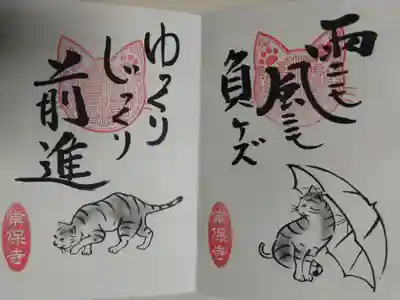 雨ニモ
風ニモ
負ケズ
常保寺
ゆっくり
じっくり
前進
常保寺